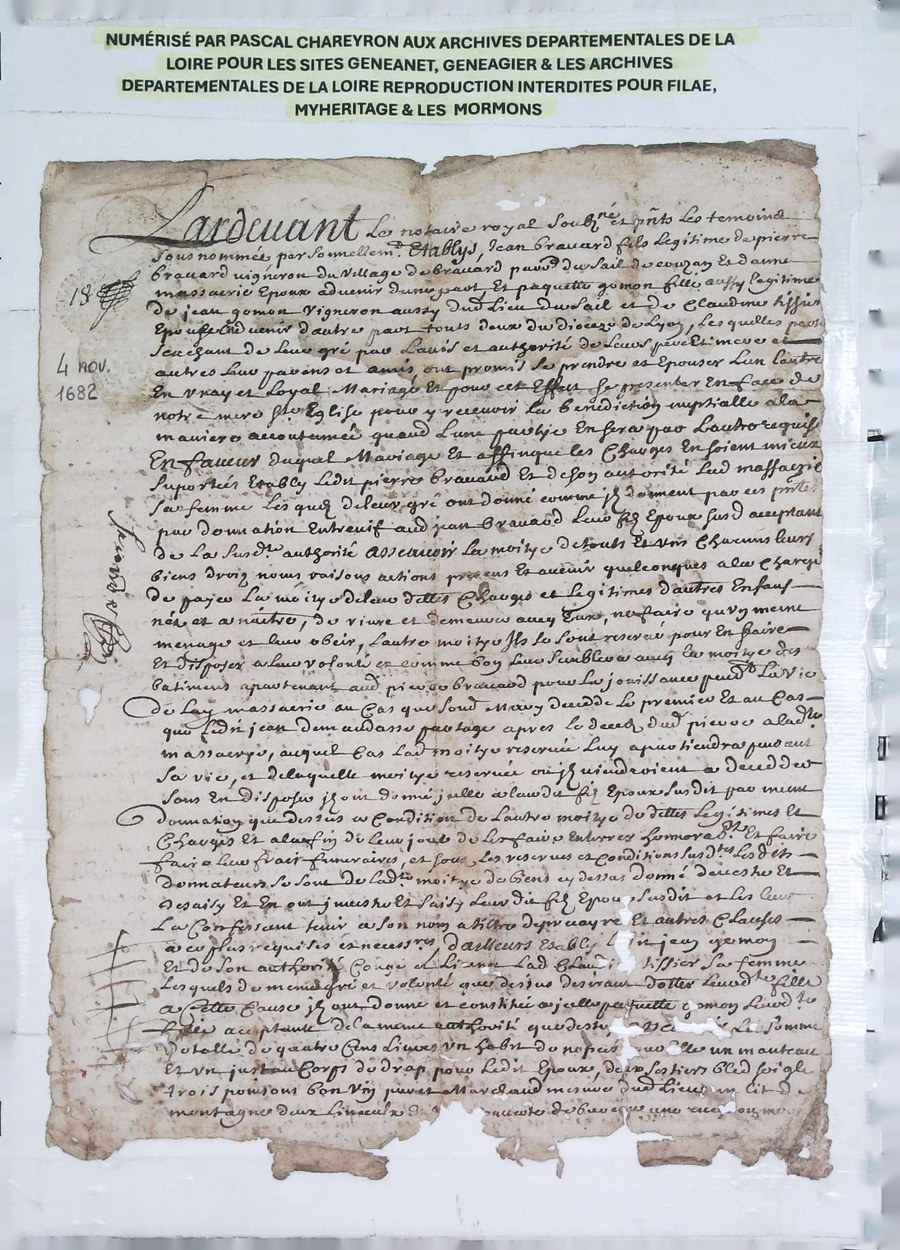 NUMÉRISÉ PAR PASCAL CHAREYRON AUX ARCHIVES DEPARTEMENTALES DE LA
LOIRE POUR LES SITES GENEANET, GENEAGIER & LES ARCHIVES
DEPARTEMENTALES DE LA LOIRE REPRODUCTION INTERDITES POUR FILAE,
MYHERITAGE & LES MORMONS
Pardevant Le notaire royal Soubznē et pñts Les temoins
Sous nommée personnellemt Etablys, Jean bravard fils legitime de pierre
bravard vigneron du village de bravard du Sail de couzan Et danne
massacrie Epoux advenir dune part Et paquette gomon fille aussy legitime
18
de jean gomon vigneron aussy dud Lieu du Sail et de Claudine tissier
Epouse advenir d'autre part touts deux du dioceze de Lyon, Les quelles parties
de Leur gré par Lavis et authorité de Leurs pere Et mere et
4 nov.
1682
autres Leur parens et amis ont promis Se prendre et Epouser Lun Lautre
En vray et Loyal Mariage Et pour cet Effect Se presenter En face de
notre mere Ste Eglise pour y recevoir La benediction nuptialle a la
maniere accoutumée quand Lune partye En Sera par Lautre requise
En faveur duquel Mariage Et affinque les Charges En Soient mieux
Suportées Etably Ledit pierre bravard Et de Son autorité Lad massacrie
Sa femme Les quelz de leur gré ont donné comme jlz donnent par ces pñtes
par donnation Entrevif aud jean bravard Leur filz Epoux Susd acceptant
de La Susdte authorité assavoir La moityé de touts Et Uns Chacuns Leurs
biens droiz noms raisons actions presens Et avenir quelconques a la Charge
de payer La moityé de leur dettes Charges et Legitimes d'autres Enfans
nés et a naitre, de vivre et demeurer avec Eux, ne faire qu'vn meme
menage et leur obeir, Lautre moitye jlz Se Sont reservé pour En faire
Et disposer a Leur volonté et comme bon Leur Semblera avec La moitye des
batimens apartenant aud pierre bravard pour La jouissance pendt La Vie
de massacrie au Cas que Sond Mary decedde Le premier Et au Cas
que Ledit jean demandasse partage apres Le decedz dud pierre a ladte
massacrye, auquel Cas Lad moitye reservée Luy apartiendra pendant
Sa vie, et delaquelle moitye reservée ou jlz viendroient a deceder
Sans En disposer jlz ont donné jcelle a leurdit filz Epoux Susdit par meme
donnation que dessus a Condition de Lautre moitye de dettes Legitimes Et
Charges Et a la fin de Leur jours de Les faire Enterrer honnorablt Et faire
faire Leur frais funeraires, et Sous Les reserves et Conditions Susdtes Les dits
donnateurs Se Sont de Ladte moitye de biens cy dessus donné devestu Et
desaisy Et En ont jnvestu Et Saisy Leur dit filz Epoux Susdit et Les Leur
La Confessant tenir a Son nom a tiltre de precayre Et autres Clauses
a ce plus requises et necessres, d'ailleurs Etably Ledit jean gomon
Et de Son authorité Congé et Licence Lad Claudine tissier Sa femme
Lesquels de meme gré et volonté que dessus desirant dotter Leurdte fille
a Cette Cause jlz ont donné et constitué a jcelle paquette gomon Leurdte
fille acceptante de la meme authorité que dessus La Somme
totalle de quatre Cens Livres Un habit de nopces un manteau
Et vn justaucorps de drap pour Ledit Epoux, deux Sestiers bled Seigle
trois ponsons bon vin pur et Marchand mesure dud Lieu un lit de
montagne deux Linceulx